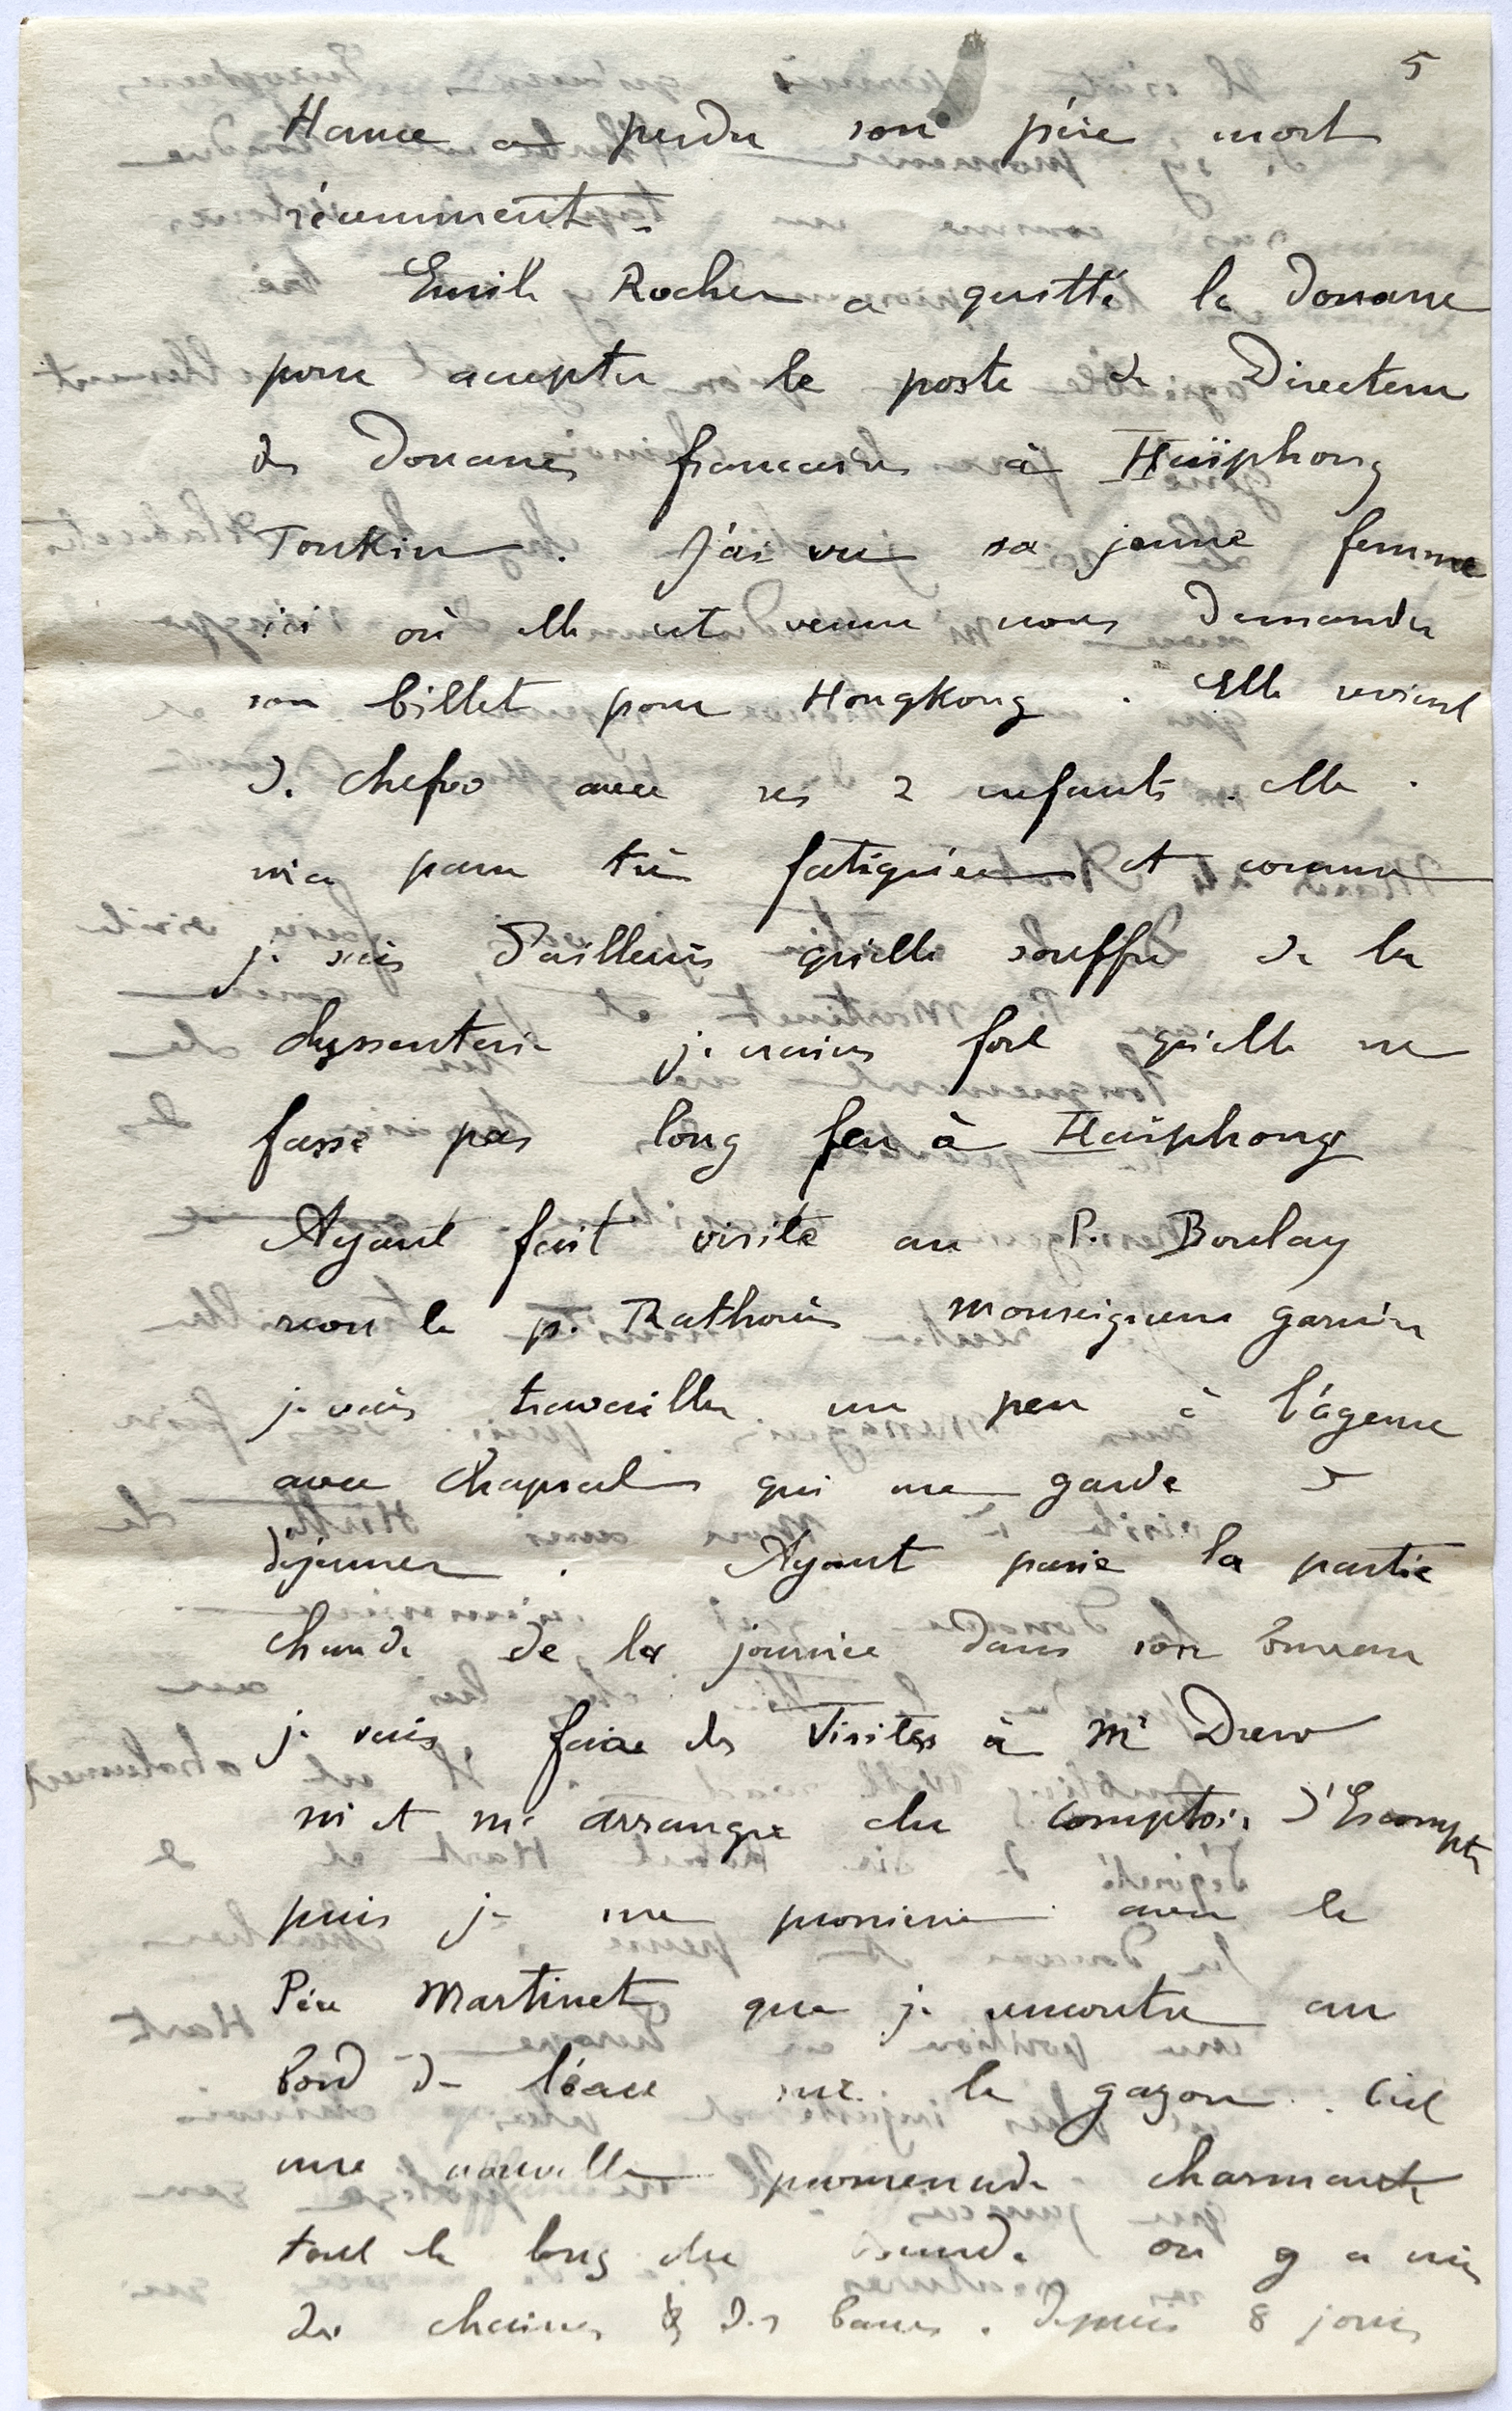 5
Hance a perdu son père mort
récemment.
Emile Rocher a quitté la Douane
pour accepter le poste de Directeur
des Douanes françaises à Haïphong
Tonkin. J'ai vu sa jeune femme
ici où elle est venue nous demander
son billet pour HongKong. Elle revient
de Chefoo avec ses 2 enfants. elle
m'a paru très fatiguée et comme
je sais d'ailleurs qu'elle souffre de la
dyssenterie je crains fort qu'elle ne
fasse pas long feu à Haïphong
Ayant fait visite au P. Boulay
le p. Rathouis monseigneur garnier
je vais travailler un peu à l'agence
avec Chapsal qui me garde à
déjeuner. Ayant passé la partie
chaude de la journée dans son bureau
je vais faire des visites à Mr Drew
arrangre du Comptoir d'Escompte
puis je me promène avec le
Père Martinet que je rencontre au
bord de l'eau sur le gazon. C'est
une nouvelle promenade charmante
tout le long du bund. on y a mis
des chaises & des bancs. depuis 8 jours